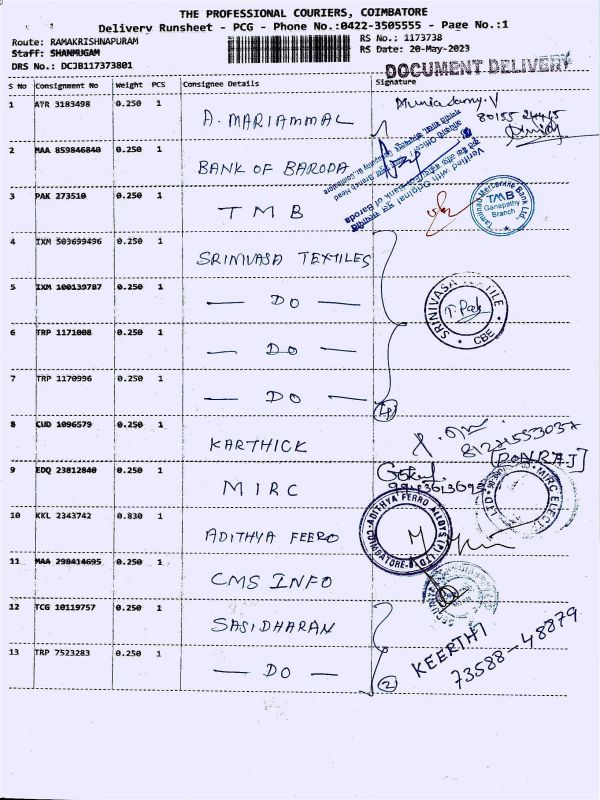 THE PROFESSIONAL COURIERS, COIMBATORE
Delivery Runsheet - PCG - Phone No.:0422-3505555 - Page No.:1
Route: RAMAKRISHNAPURAM
RS No.: 1173738
Staff: SHANMUGAM
RS Date: 20-May-2023
DRS No.: DCJB117373801
DOCUMENT DELIVERY
S No Consignment No Weight PCS Consignee Details Signature
1 ATR 3183498 0.250 1 A. MARIAMMAL
Muniasamy. V
2 MAA 859846840 0.250 1 BANK OF BARODA
Verified with Original
Bank of Baroda
3 PAK 273510 0.250 1 TMB
Tamilnad Mercantile Bank Ltd.
TMB
Ganapathy
Branch
4 IXM 503699496 0.250 1 SRINIVASA TEXTILES
5 IXM 100139787 0.250 1 — DO —
SRINIVASA TEXTILE
CBE
6 TRP 1171008 0.250 1 — DO —
7 TRP 1170996 0.250 1 — DO —
4
8 CUD 1096579 0.250 1 KARTHICK
[PONRAJ]
9 EDQ 23812840 0.250 1 MIRC
Gokul
MIRC ELECT
LTD
10 KKL 2343742 0.830 1 ADITHYA FEERO
ADITHYA FERRO ALLOYS (P) LTD
COIMBATORE
11 MAA 298414695 0.250 1 CMS INFO
12 TCG 10119757 0.250 1 SASIDHARAN
KEERTHI
73588-48879
13 TRP 7523283 0.250 1 — DO —
2